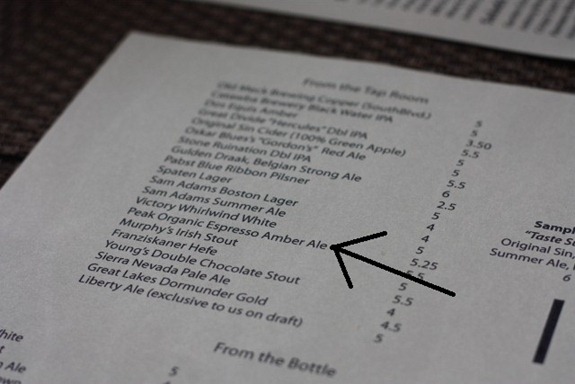 From the Tap Room
Old Meck Brewing Copper (SouthBlvd.) 5
Brewery Black Water IPA 5
Dos Equis Amber 3.50
Great Divide "Hercules" Dbl IPA 5.5
Original Sin Cider (100% Green Apple) 5
Oskar Blues's "Gordon's" Red Ale 5
Stone Ruination Dbl IPA 5.5
Gulden Draak, Belgian Strong Ale 6
Pabst Blue Ribbon Pilsner 2.5
Spaten Lager 5
Sam Adams Boston Lager 4
Sam Adams Summer Ale 4
Victory Whirlwind White 5
Peak Organic Espresso Amber Ale 5.25
Murphy's Irish Stout 5.5
Franziskaner Hefe 5
Young's Double Chocolate Stout 5.5
Sierra Nevada Pale Ale 4
Great Lakes Dormunder Gold 4.5
Liberty Ale (exclusive to us on draft) 5
Sampl
"Taste S
Original Sin,
Summer Ale,
6
From the Bottle
White
n Ale
5